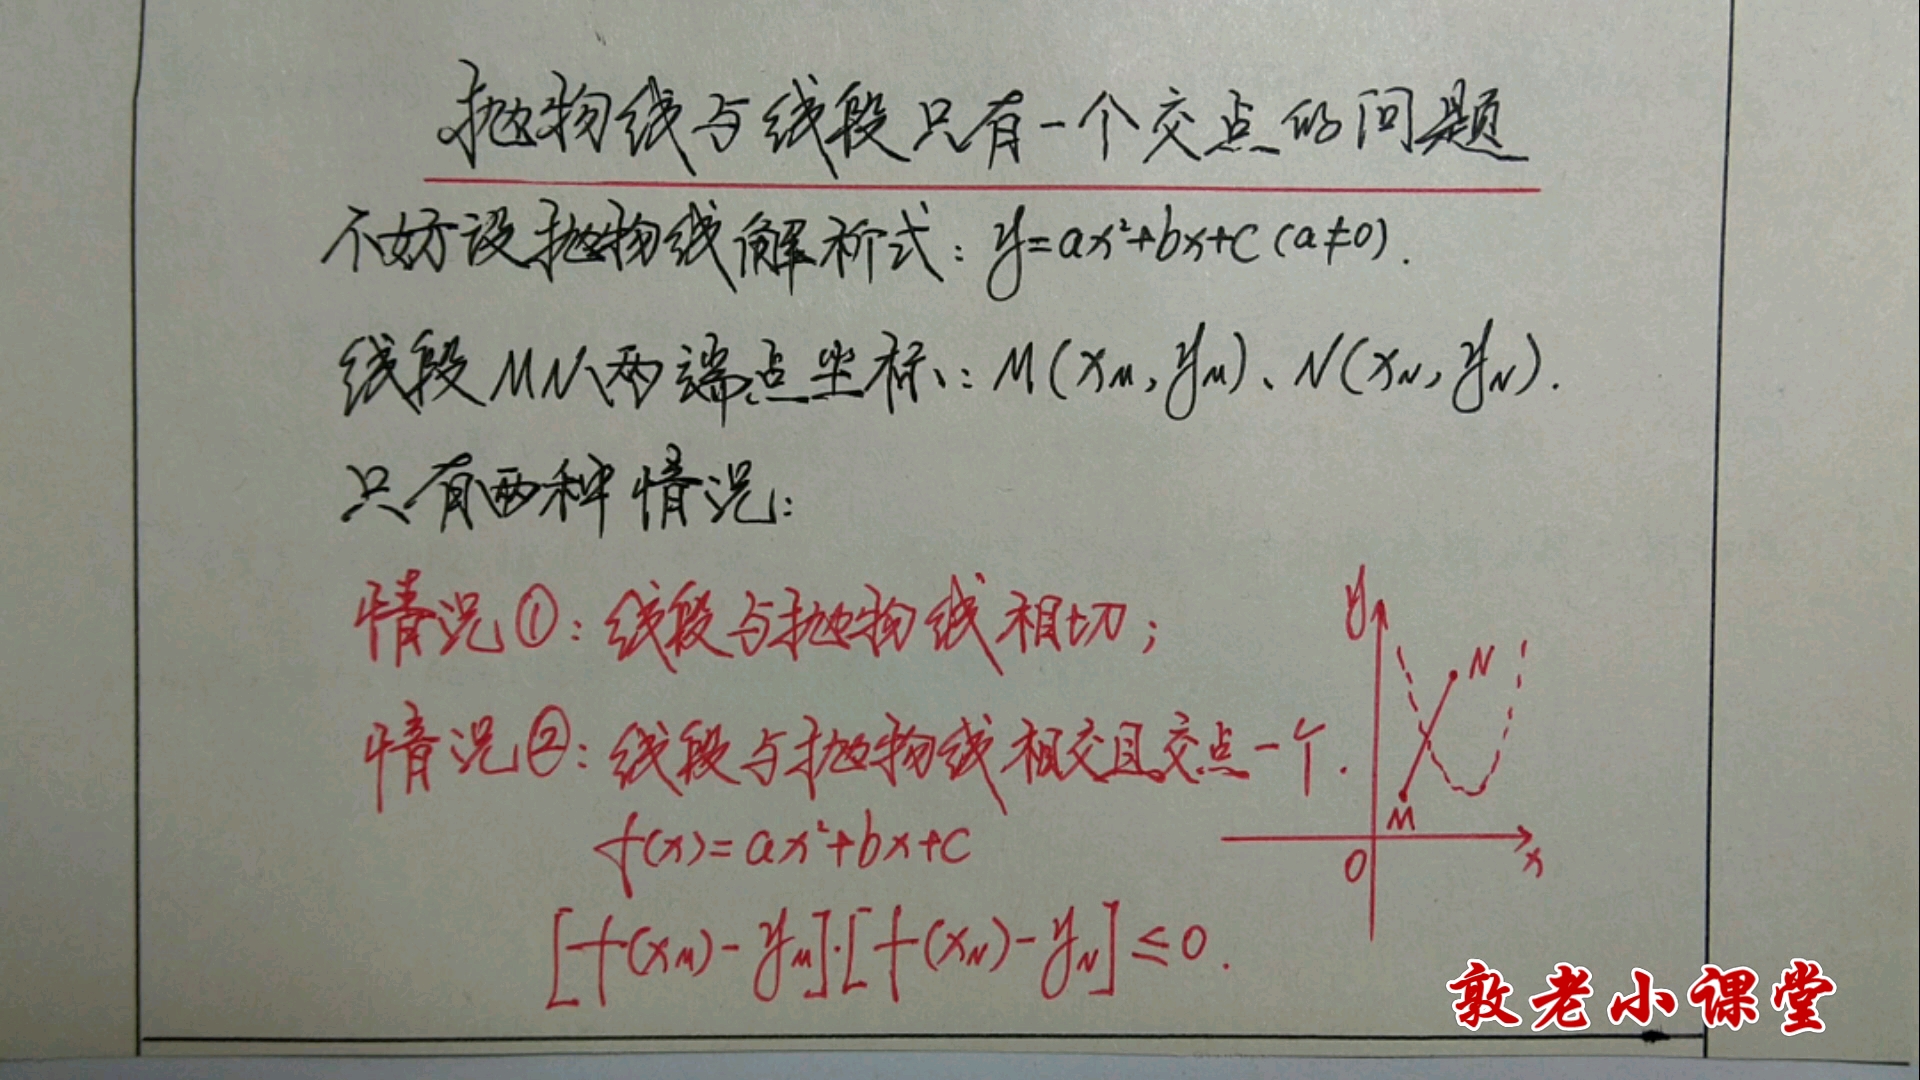 抛物线与线段只有一个交点的问题
不妨设抛物线解析式：y=ax²+bx+c(a≠0).
线段MN两端点坐标：M(x_M, y_M)、N(x_N, y_N).
只有两种情况：
情况①：线段与抛物线相切；
情况②：线段与抛物线相交且交点一个.
f(x)=ax²+bx+c
[f(x_M)-y_M]·[f(x_N)-y_N]≤0.
y
N
M
O
x
敦老小课堂